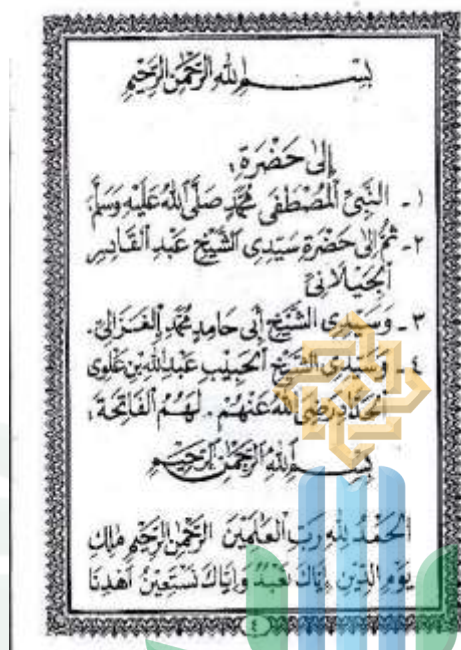 بِسْمِ اللهِ الرَّحْمٰنِ الرَّحِيْمِ
إِلَى حَضْرَةِ:
١ - النَّبِيِّ الْمُصْطَفَى مُحَمَّدٍ صَلَّى اللهُ عَلَيْهِ وَسَلَّمَ،
٢ - ثُمَّ إِلَى حَضْرَةِ سَيِّدِى الشَّيْخِ عَبْدِ الْقَادِرِ
الْجَيْلَانِيّ
٣ - وَسَيِّدِى الشَّيْخِ أَبِى حَامِدٍ مُحَمَّدٍ الْغَزَالِيّ.
٤ - وَسَيِّدِى الشَّيْخِ الْحَبِيْبِ عَبْدِ اللهِ بْنِ عَلَوِى
الْحَدَّادِ رَضِيَ اللهُ عَنْهُمْ. لَهُمُ الْفَاتِحَةُ:
بِسْمِ اللهِ الرَّحْمٰنِ الرَّحِيْمِ
الْحَمْدُ لِلّٰهِ رَبِّ الْعٰلَمِيْنَ الرَّحْمٰنِ الرَّحِيْمِ مٰلِكِ
يَوْمِ الدِّيْنِ إِيَّاكَ نَعْبُدُ وَإِيَّاكَ نَسْتَعِيْنُ اهْدِنَا
٤